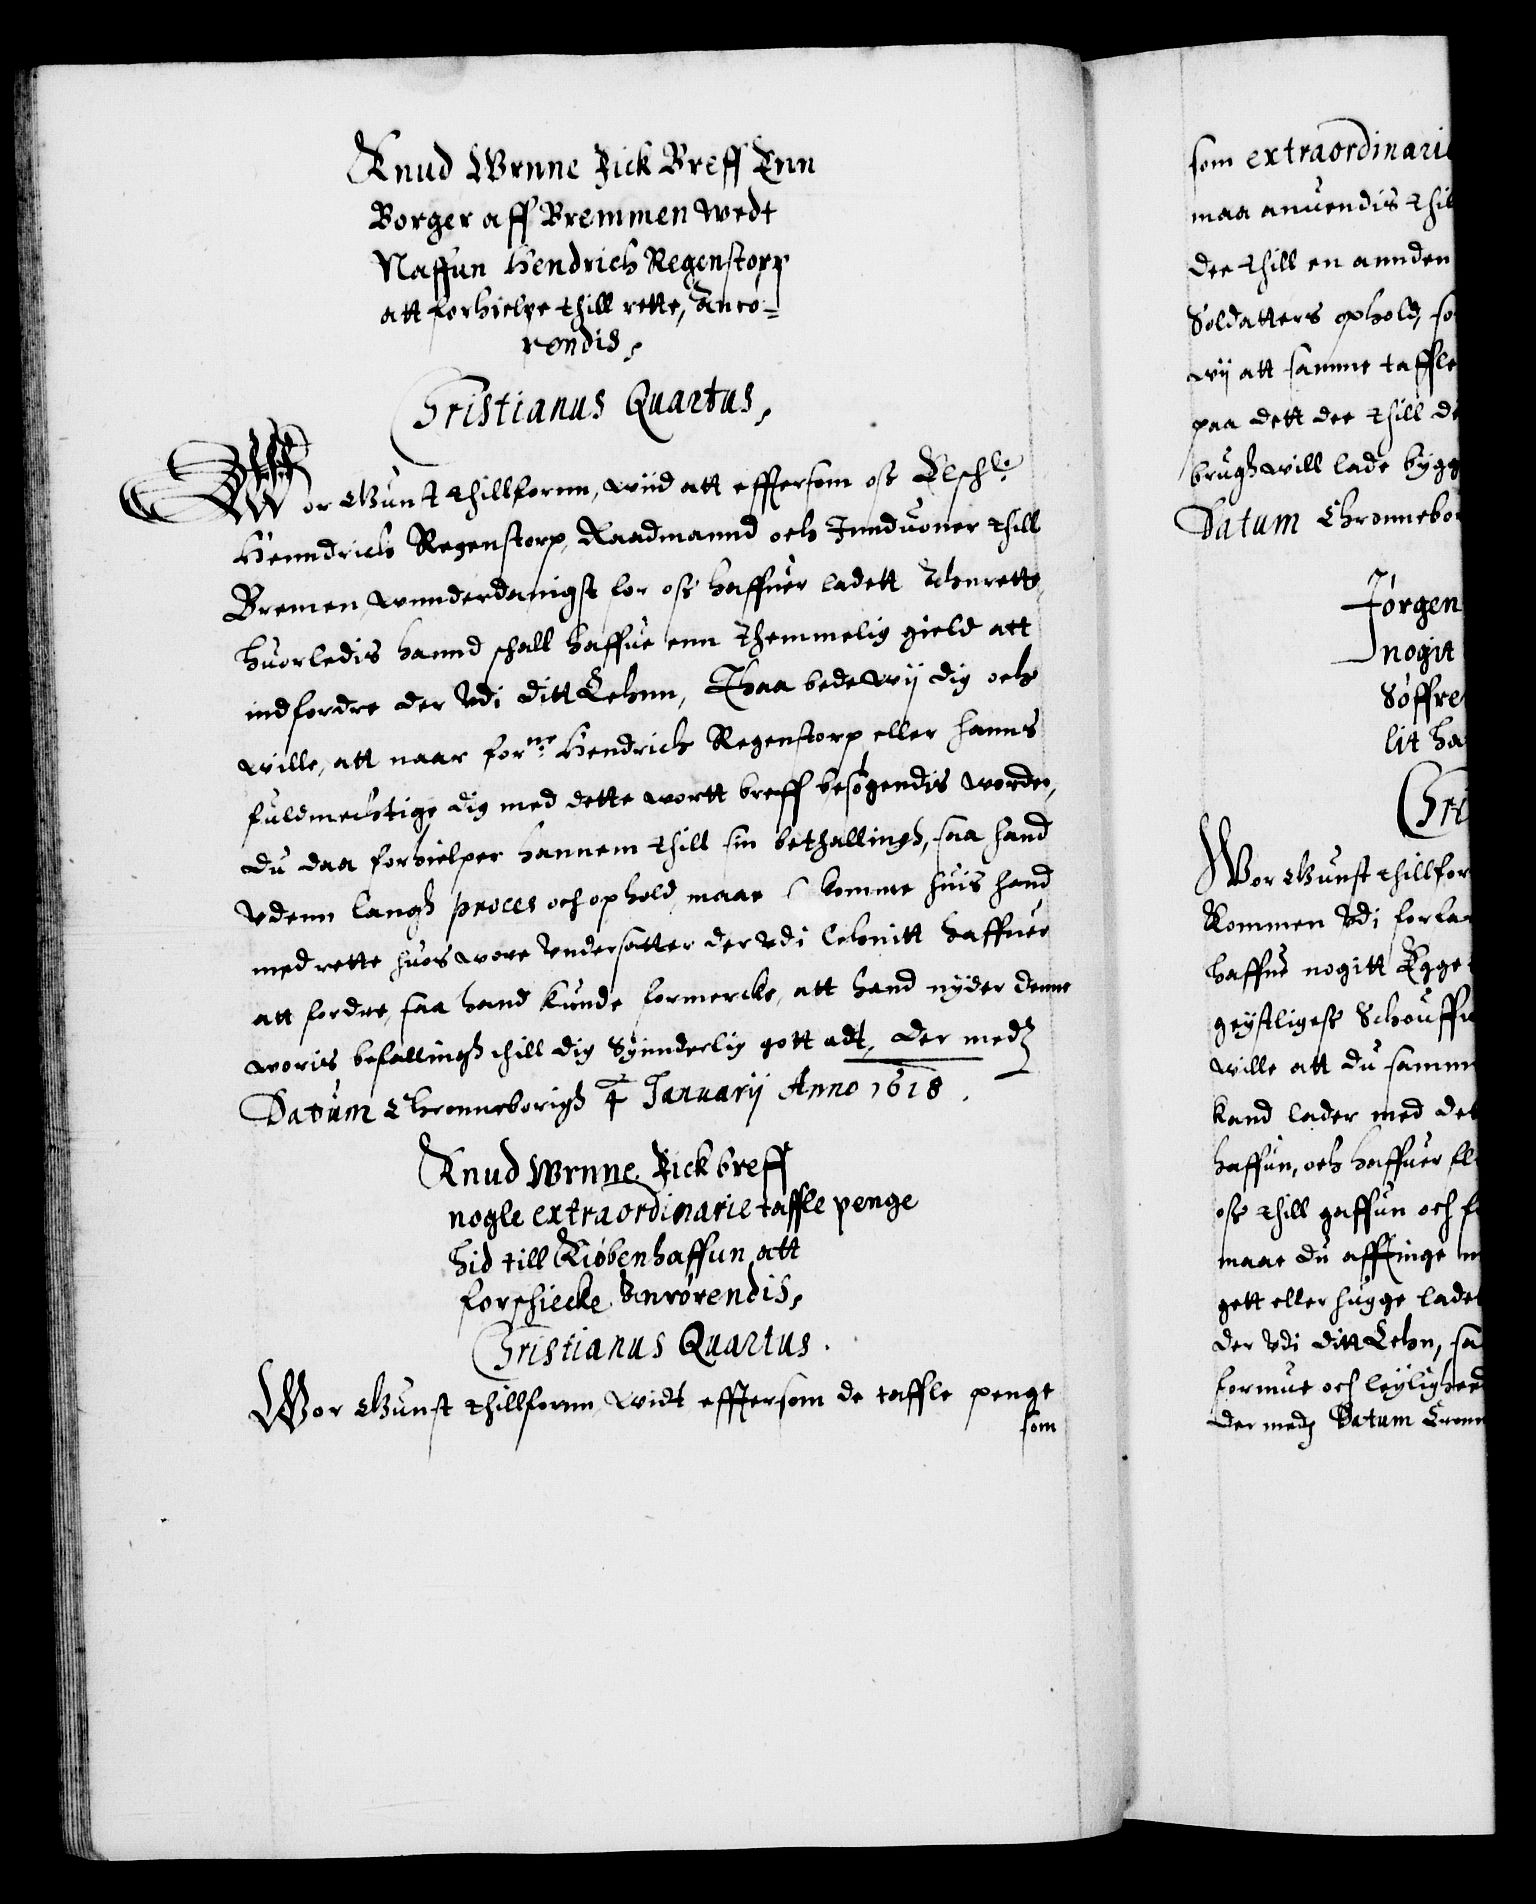 Knud Wrnne Fick Breff Enn
Borger aff Bremmen wedt
Naffun Hendrich Regenstorp
att forhielpe thill rette, Anrö-
rendis,
Christianus Quartus,
Wor Gunst thillfornn, wiid att effttersom oss Elsch:
Henndrich Regenstorp, Raadmannd och Innduoner thill
Bremen, wnnderdanigst for oss haffuer ladett
huorledis hannd schall haffue enn themmelig gield att
indfordre der Vdi ditt Lehnn, Thaa bede wij dig och
wille, att naar forne: Hendrich Regenstorp eller hanns
fuldmechtige dig med dette wortt breff besögendis worder,
du daa forhielper hannem thill sin bethallingh, saa hand
Vdenn langh proces och ophold, maae komme huis hand
med rette huos wore Vndersatter der Vdi lehnitt haffuer
att fordre, saa hand kunde formercke, att hand nyder denne
woris befallingh thill dig Synnderlig gott adt, der medh
Datum Chronneborigh 4 Januarij Anno 1618.
Knud Wrnne Fick breff
nogle extraordinarie taffle penge
hid till Kiöbenhaffun att
forschiecke Anrörendis,
Christianus Quartus.
Wor Gunst thillfornn, Widt effttersom de taffle penge
som
som extraordinarie
maa anuendis thil
der thill en annden
Soldatters ophold, so
wij att samme taffle
paa dett der thill
brugh will lade bygg
Datum Chronnebor
Jörgen
nogit
Söffre
lit ha
Chri
Wor Gunst thillfor
Kommen Vdi forfa
haffue nogitt Egge
Schouffu
wille att du samm
kand lader med det
haffun, och haffuer
oss thill gaffun och
maae du
gett eller hugge lade
der Vdi ditt Lehn, sa
formue och leyligheed
der medh Datum Cronn